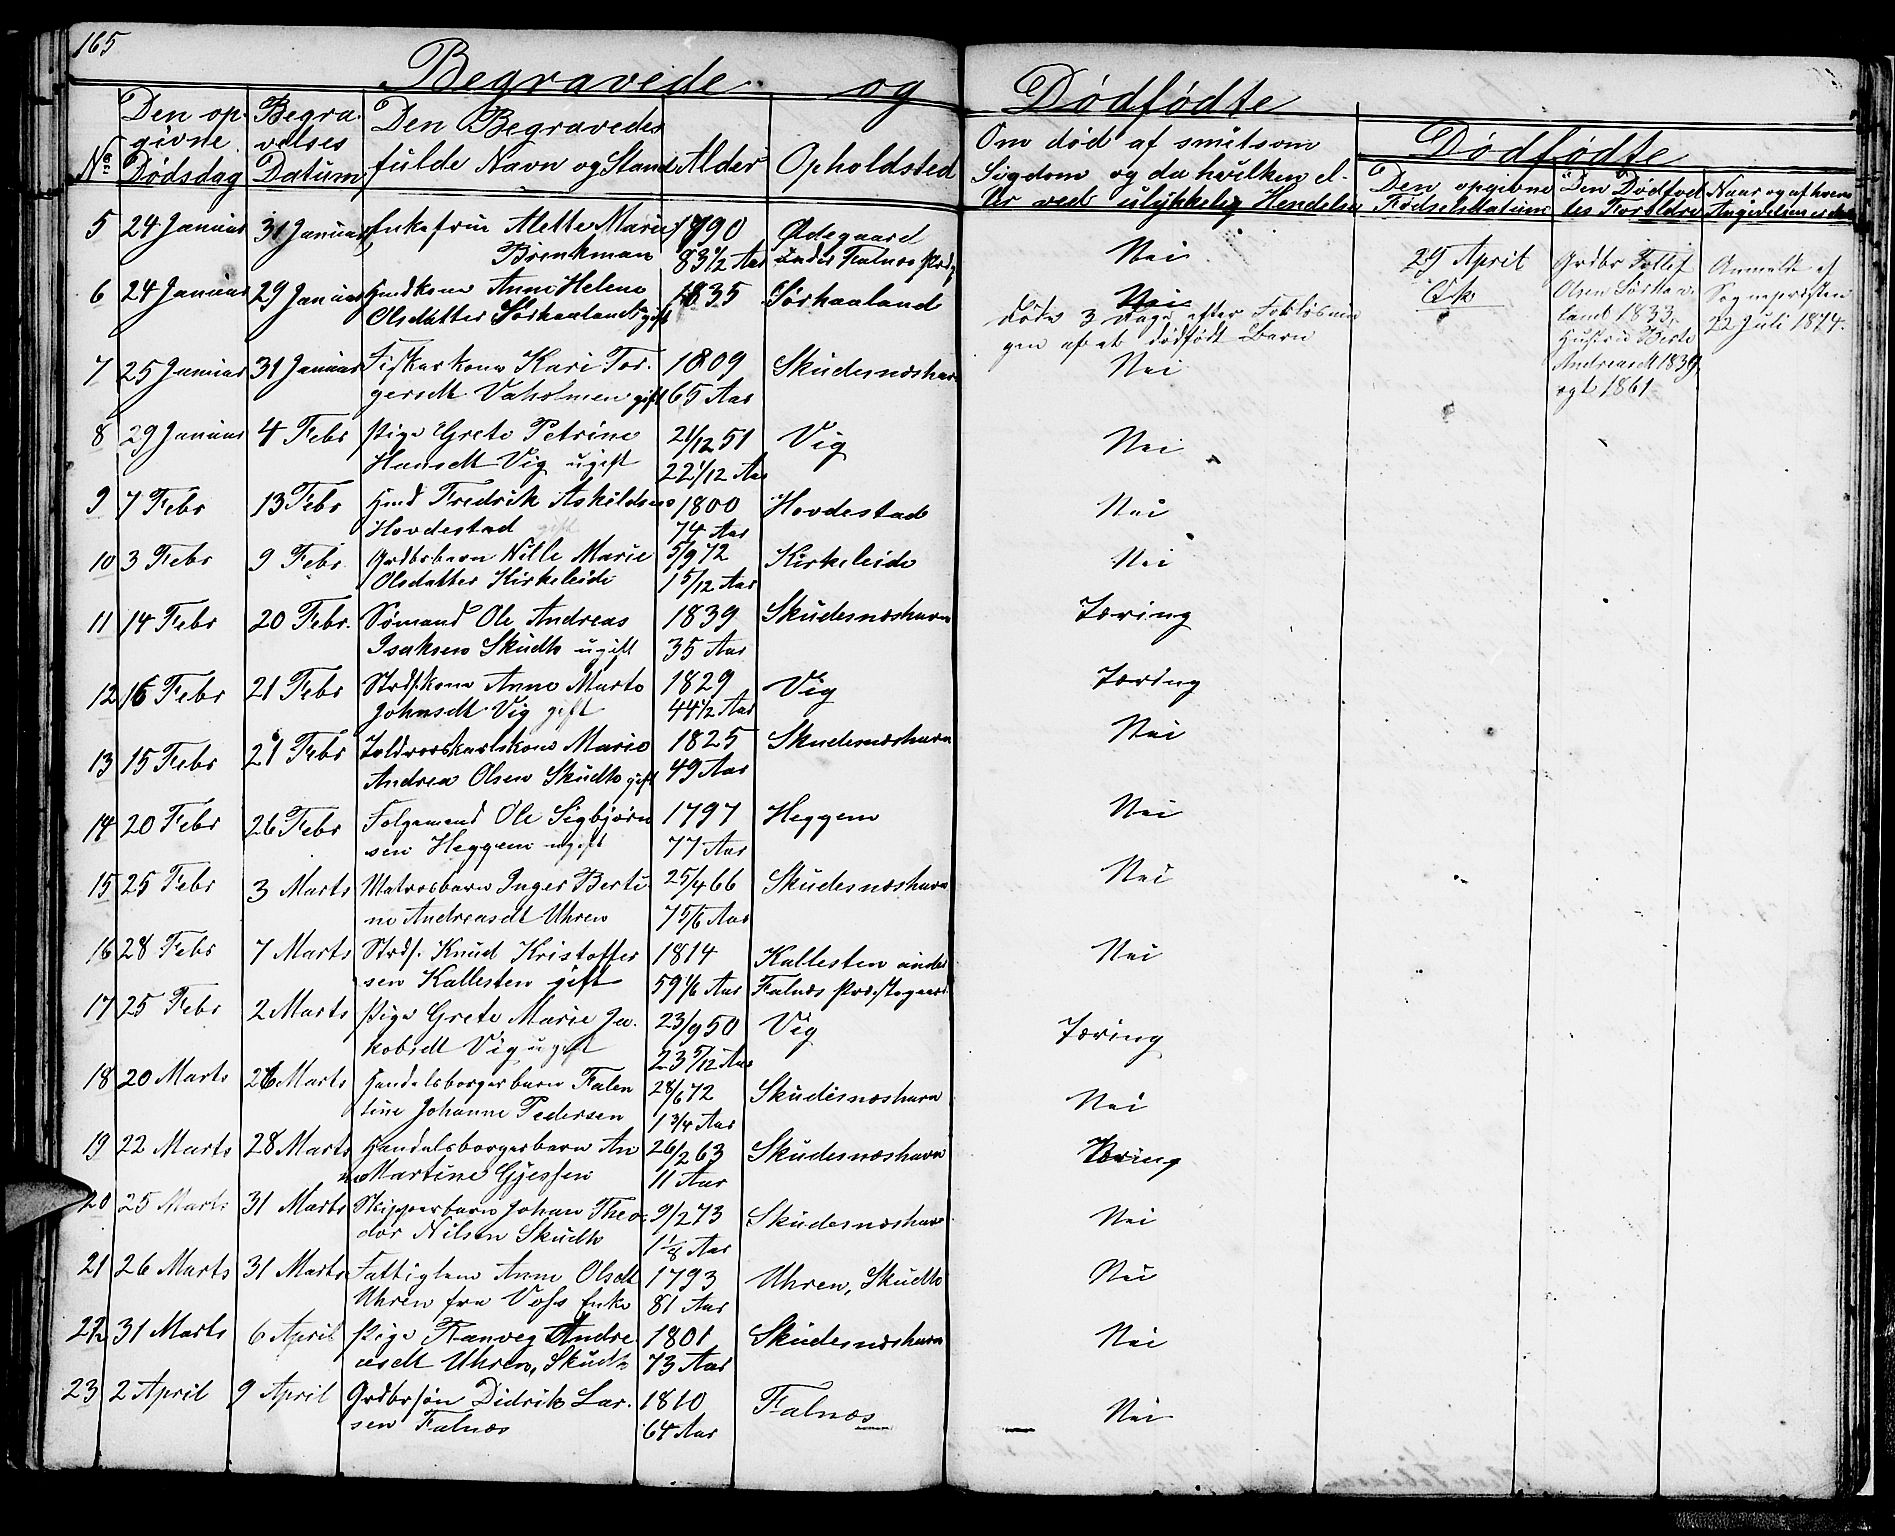 165
Begravede og Dødfødte
No
Den opgivne Dødsdag
Begravelses Datum
Den Begravedes fulde Navn og Stand
Alder
Opholdsted
Om død af smitsom Sygdom og da hvilken eller ved ulykkelig Hendelse
Dødfødte
Den opgivne Fødselsdatum
Den Dødfødtes Forældre
Naar og af hvem
5 24 Januar 31 Januar Enkefrue Mette Marie 1790 Ødegaard Nei
Brinkman 83 1/2 Aar under Falnæs
6 24 Januar 29 Januar Anne Helene 1835 Sørhaaland Nei
Olsdatter Sørhaaland gift
Døde 3 Dage efter
gen af et dødfødt Barn
29 April
Qk
Grdbr Tollef
Olsen Sørhaa
land 1833,
Hustru Berte
Andreasdt 1839
egt 1861
Anmeldt af
Sognepresten
22 Juli 1874.
7 25 Januar 31 Januar Fiskerkone Kari Tor 1809 Skudesnæshavn Nei
gersdt Vaholmen gift 65 Aar
8 29 Januar 4 Febr Pige Grete Petrine 21/12 51 Vig Nei
Hansdt Vig ugift 22 1/12 Aar
9 7 Febr 13 Febr Fredrik Askildsen 1800 Hovdestad Nei
Hovdestad gift 74 Aar
10 3 Febr 9 Febr. Grdbrbarn Nille Marie 5/9 72 Kirkeleide Nei
Olsdatter Kirkeleide 1 5/12 Aar
11 14 Febr 20 Febr. Sømand Ole Andreas 1839 Skudesnæshavn Tæring
Isaksen Skudh ugift 35 Aar
12 16 Febr 21 Febr Strds.kone Anne Marte 1829 Vig Tæring
Johnsdt Vig gift 44 1/2 Aar
13 15 Febr 21 Febr Toldroerskarlskone Marie 1825 Skudesnæshavn Nei
Andrea Olsen Skudh gift 49 Aar
14 20 Febr 26 Febr Folgemand Ole Sigbjørn 1797 Heggem Nei
sen Heggem ugift 77 Aar
15 25 Febr 3 Marts Matrosbarn Inger Berti 25/4 66 Skudesnæshavn Nei
ne Andreasdt Uhren 7 5/6 Aar
16 28 Febr 7 Marts Strds. Knud Kristoffer 1814 Kallesten under Nei
sen Kallesten gift 59 1/6 Aar Falnæs Præstegaard
17 25 Febr 2 Marts Pige Grete Marie Ja. 23/9 50 Vig Tæring
kobsdt Vig ugift 23 5/12 Aar
18 20 Marts 26 Marts Handelsborgerbarn Falen 28/6 72 Skudesnæshavn Nei
tine Johanne Pedersen 1 3/4 Aar
19 22 Marts 28 Marts Handelsborgerbarn An 26/2 63 Skudesnæshavn Tæring
ne Martine Gjessen 11 Aar
20 25 Marts 31 Marts Skipperbarn Johan Theo 9/2 73 Skudesnæshavn Nei
dor Nilsen Skudh 1 1/8 Aar
21 26 Marts 31 Marts Fattiglem Anne Olsdt 1793 Uhren, Skudh Nei
Uhren fra Voss Enke 81 Aar
22 31 Marts 6 April Pige Ranveg Andre 1801 Skudesnæshavn Nei
asdt Uhren, Skudh 73 Aar
23 2 April 9 April Grdbrsøn Didrik Lar. 1810 Falnæs Nei
sen Falnæs 64 Aar